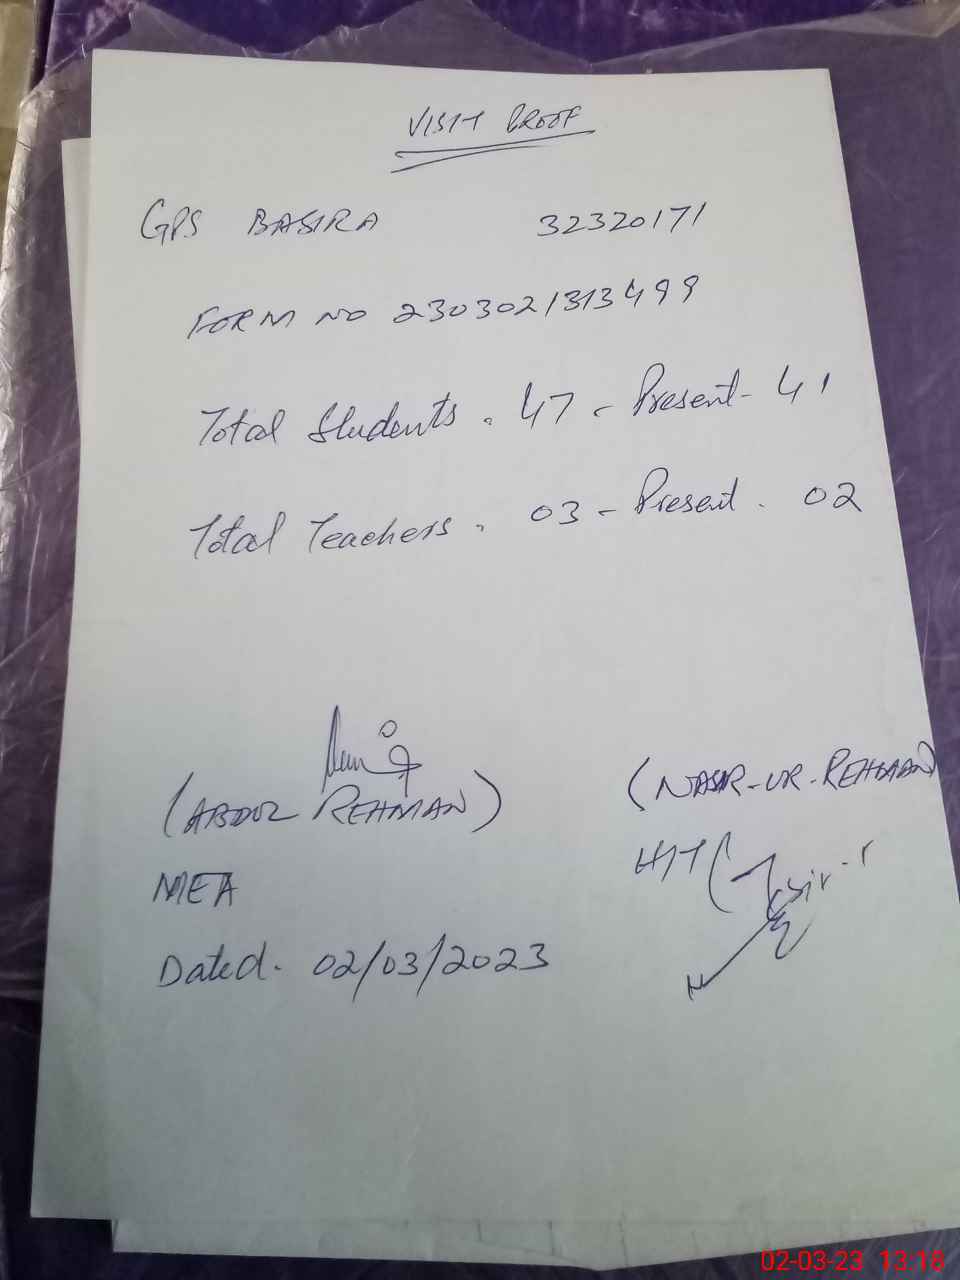 VISIT PROOF
GPS BASIRA 32320171
FORM NO 2303021313499
Total Students. 47 - Present - 41
Total Teachers. 03 - Present. 02
(ABDUL REHMAN) (NASIR-UR-REHMAN)
MEA H/T
Dated. 02/03/2023
02-03-23 13:18